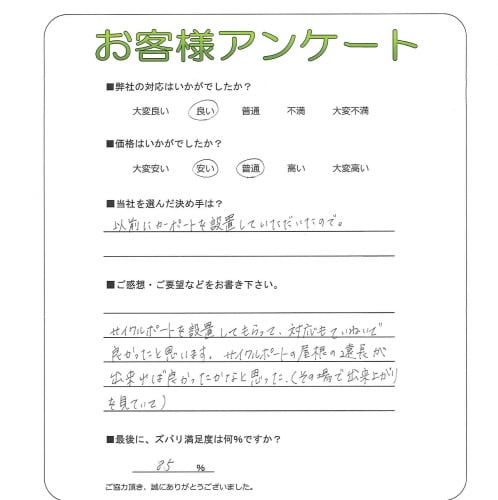 お客様アンケート
■弊社の対応はいかがでしたか?
大変良い 良い 普通 不満 大変不満
■価格はいかがでしたか?
大変安い 安い 普通 高い 大変高い
■当社を選んだ決め手は?
以前にカーポートを設置していただいたので。
■ご感想・ご要望などをお書き下さい。
サイクルポートを設置してもらって、対応もていねいで
良かったと思います。サイクルポートの屋根の延長が
出来れば良かったかなと思った。(その場で出来上がり
を見ていて)
■最後に、ズバリ満足度は何%ですか?
85 %
ご協力頂き、誠にありがとうございました。